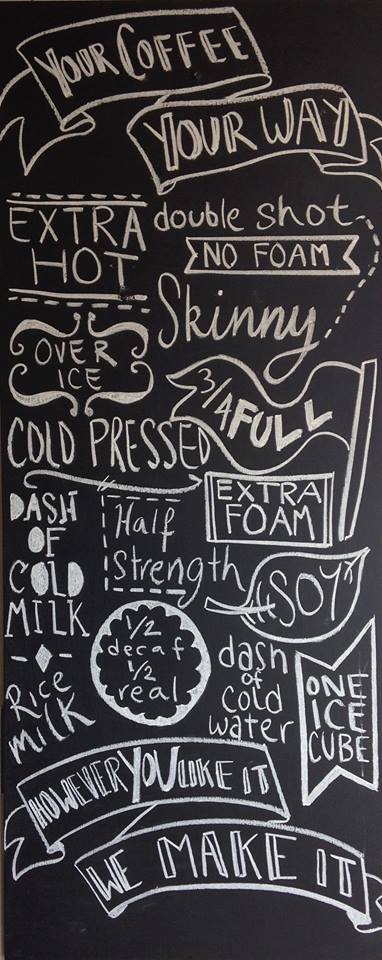 YOUR COFFEE
YOUR WAY
EXTRA
HOT
double shot
NO FOAM
Skinny
OVER
ICE
3/4 FULL
COLD PRESSED
EXTRA
FOAM
DASH
OF
COLD
MILK
Half
Strength
SOY
1/2
decaf
1/2
real
dash
of
cold
water
ONE
ICE
CUBE
Rice
Milk
HOWEVER YOU LIKE IT
WE MAKE IT